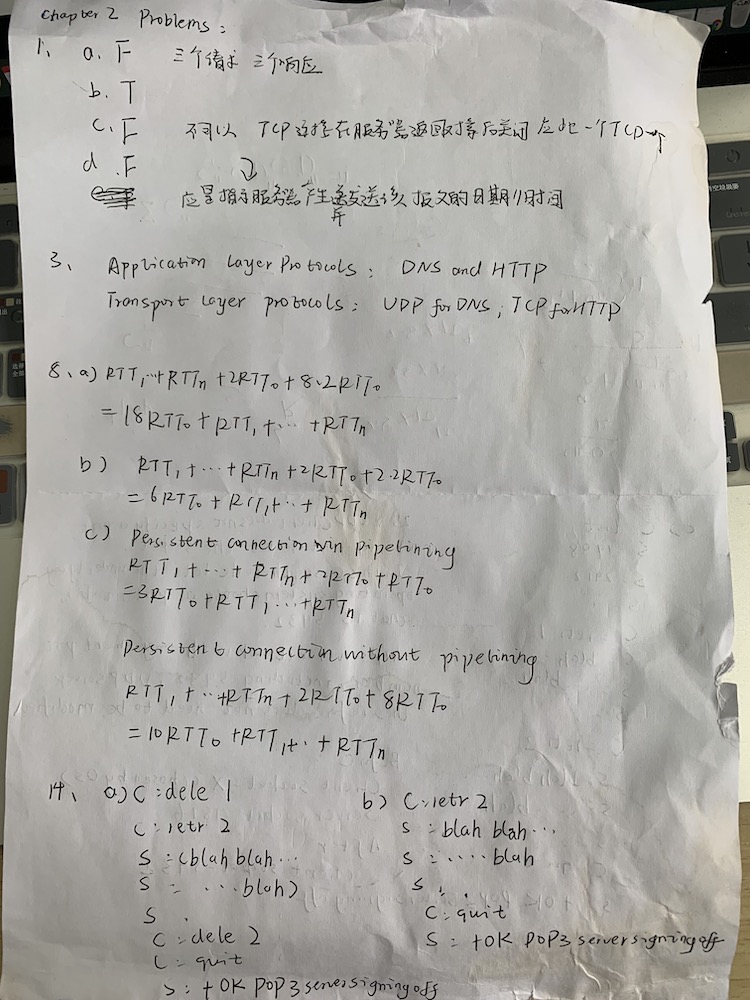 Chapter 2 Problems:
1、 a. F 三个请求 三个响应
b. T
c. F 不可以 TCP连接在服务器返回 后关闭 一个TCP
d. F
应是指示服务器产生并发送该报文的日期/时间
3、 Application Layer Protocols: DNS and HTTP
Transport layer protocols: UDP for DNS; TCP for HTTP
8、a) RTT1…+RTTn+2RTT0+8·2RTT0
=18RTT0+RTT1+…+RTTn
b) RTT1+…+RTTn+2RTT0+2·2RTT0
=6RTT0+RTT1+…+RTTn
c) Persistent connection pipelining
RTT1+…+RTTn+2RTT0+RTT0
=3RTT0+RTT1…+RTTn
persistent connection without pipelining
RTT1+…+RTTn+2RTT0+8RTT0
=10RTT0+RTT1+…+RTTn
14、 a) C:dele 1
C:retr 2
S:(blah blah…
S:…blah)
S .
C:dele 2
C:quit
S:+OK POP3 server signing off
b) C:retr 2
S:blah blah…
S:….blah
S .
C:quit
S:+OK POP3 server signing off